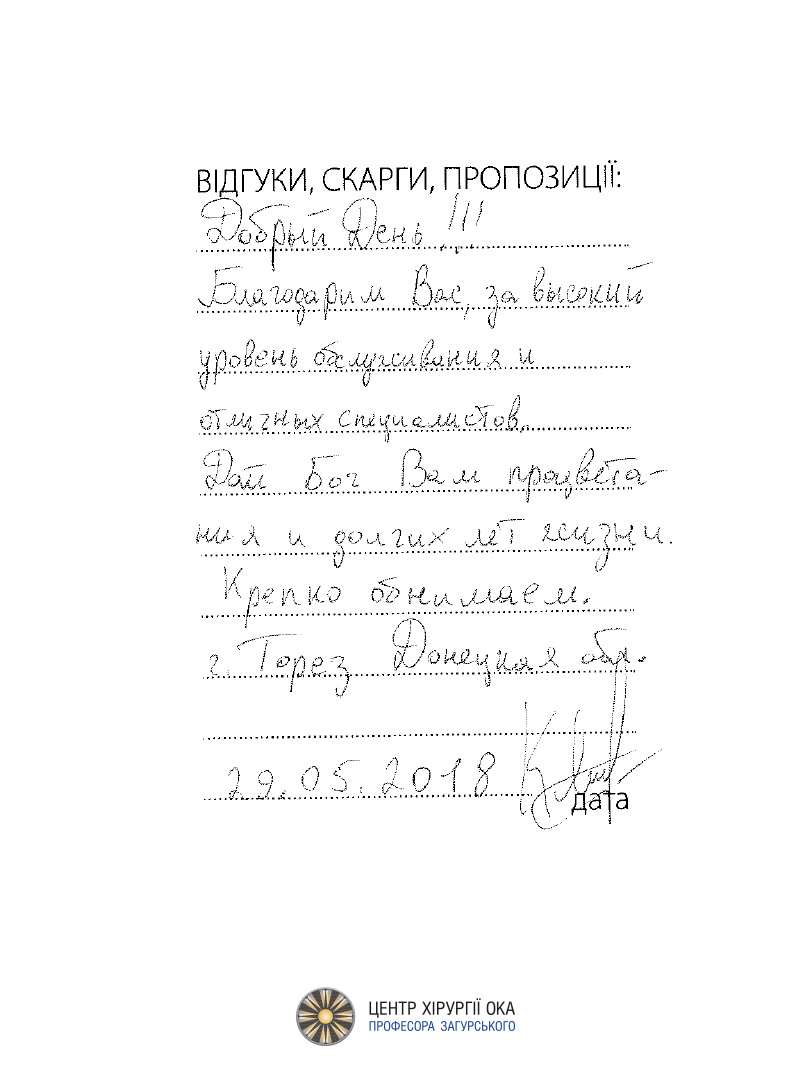 ВІДГУКИ, СКАРГИ, ПРОПОЗИЦІЇ:
Добрый День !!!
Благодарим Вас, за высокий
уровень обслуживания и
отличных специалистов.
Дай Бог Вам процвета-
ния и долгих лет жизни.
Крепко обнимаем.
г. Торез Донецкая обл.
29.05.2018
дата
ЦЕНТР ХІРУРГІЇ ОКА
ПРОФЕСОРА ЗАГУРСЬКОГО